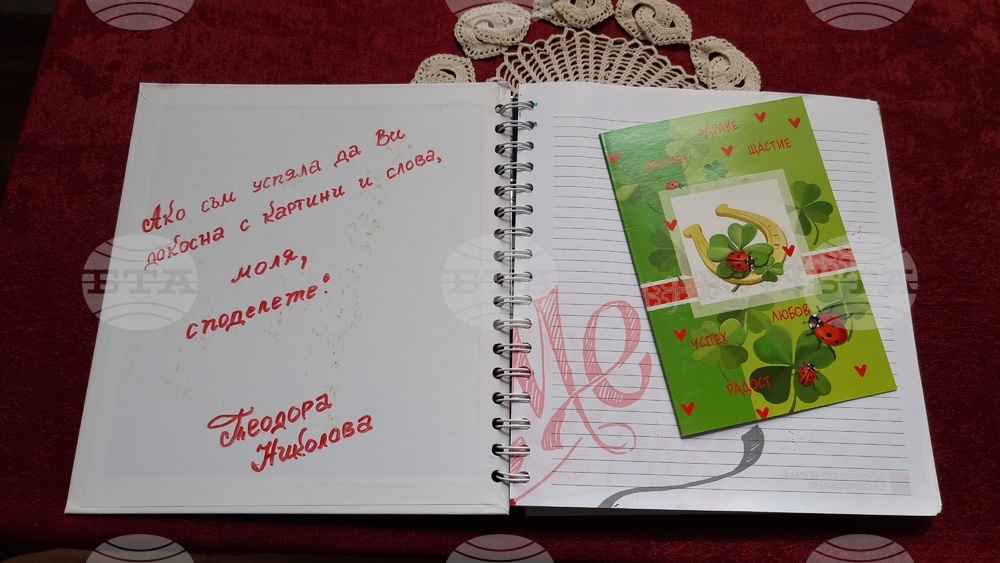 Ако съм успяла да Ви
докосна с картини и слова,
моля,
споделете:
Теодора
Николова
ЗДРАВЕ
ЩАСТИЕ
ЛЮБОВ
УСПЕХ
РАДОСТ
БТА
БТА